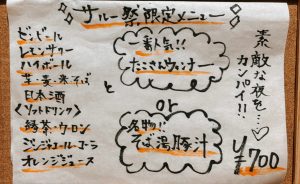 サルー祭限定メニュー
ビンビール
レモンサワー
ハイボール
芋・麦・米・そば
日本酒
<ソフトドリンク>
緑茶・ウーロン
ジンジャエール・コーラ
オレンジジュース
と
一番人気!!
たこさんウィンナー
or
名物!!
そば湯豚汁
素敵な夜を…♡
カンパイ!!
¥700